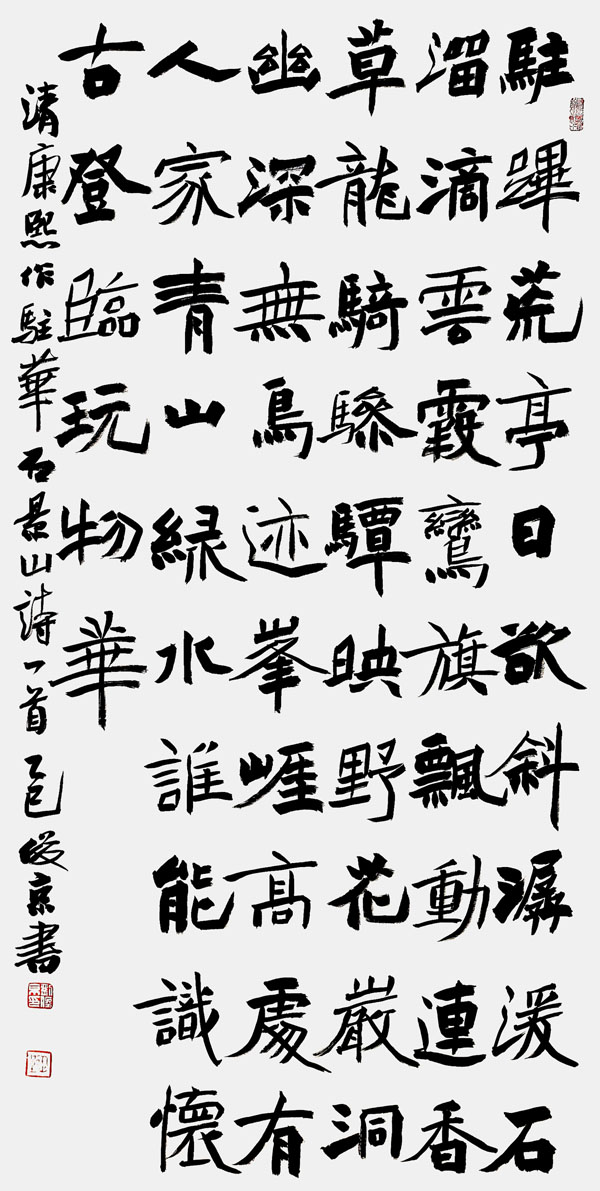 駐蹕荒亭日欲斜潺湲石
溜滴雲霞鸞旗飄動連香
草龍騎驂驔映野花巖洞
幽深無鳥迹峯崕高處有
人家青山綠水誰能識懷
古登臨玩物華
清康熙作駐華石景山詩一首 乙巳 俊京書